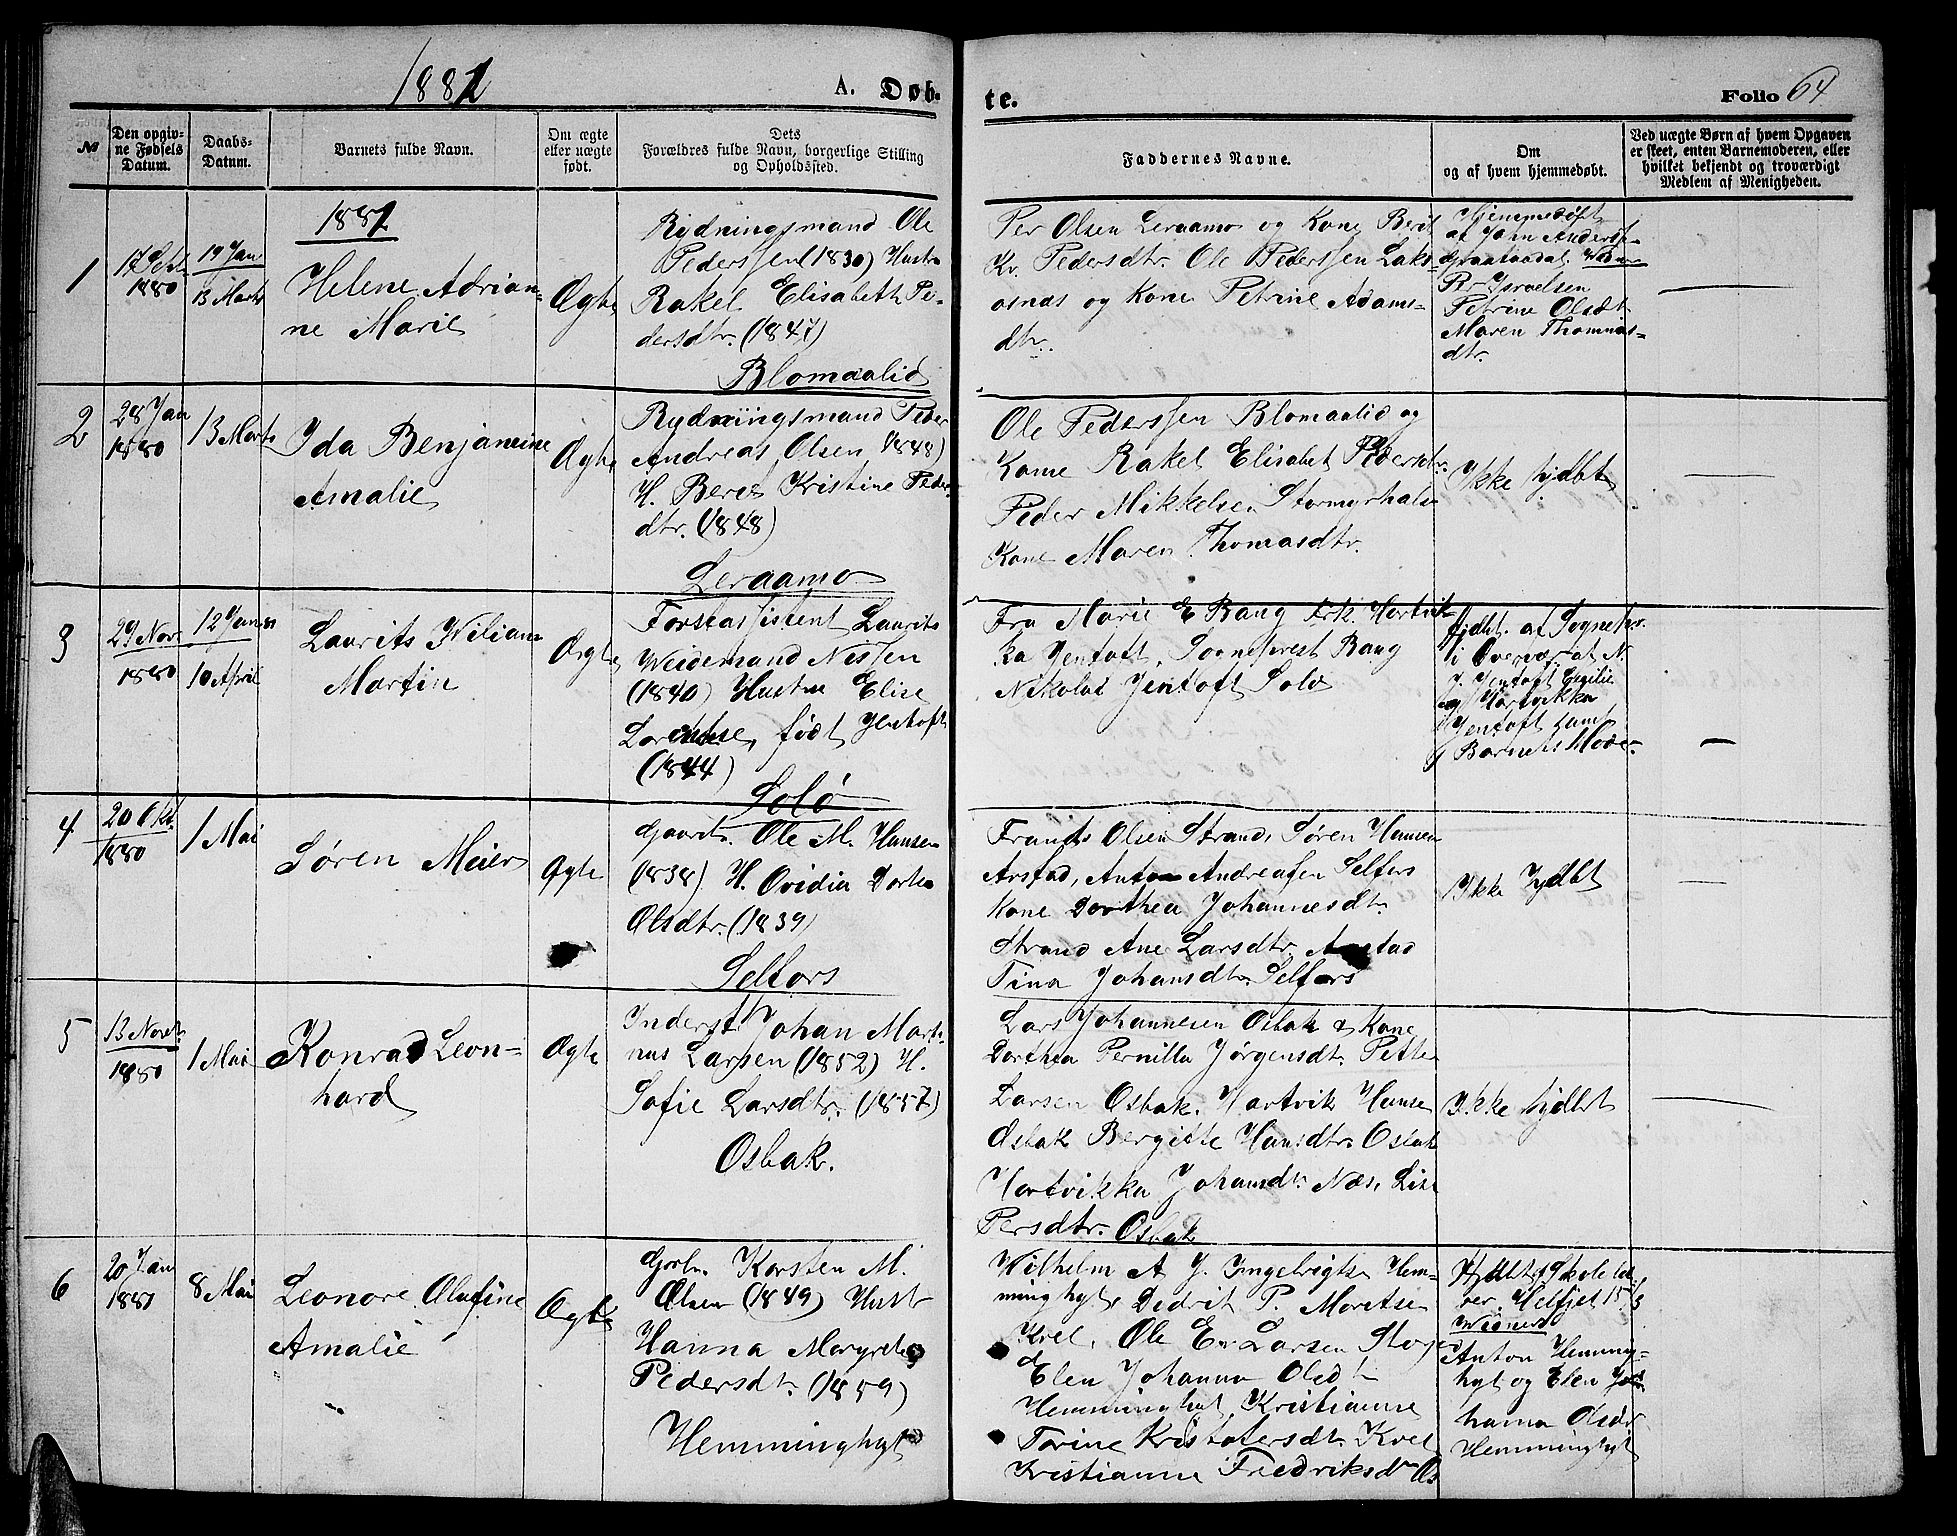 1881
A. Døb-
te.
Folio 64
№
Den opgiv-
ne Fødsels
Datum.
Daabs-
Datum.
Barnets fulde Navn.
Om ægte
eller uægte
født.
Dets
Forældres fulde Navn, borgerlige Stilling
og Opholdssted.
Faddernes Navne.
Om
og af hvem hjemmedøbt.
Ved uægte Børn af hvem Opgaven
er skeet, enten Barnemoderen, eller
hvilket bekjendt og troværdigt
Medlem af Menigheden.
1881
1
1880
19 Jan
13 Marts
Helene Adrian-
ne Marie
Ægte
Rydningsmand Ole
Pederssen (1830) Hustru
Rakel Elisabeth Pe-
dersdtr. (1847)
Blomaalid
Per Olsen Leraamo og Kone Berit
Kr. Pedersdtr. Ole Pederssen Laks-
osnæs og Kone Petrine Adams-
dtr.
Hjemmedøbt
af John
Per Israelsen
Petrine Olsdt
Maren Thomas-
dtr.
2
28 Jan
1880
13 Marts
Ida Benjamine
Amalie
Ægte
Rydningsmand Peder
Andreas Olsen (1848)
H. Beret Kristine Peder-
dtr. (1848)
Leraamo
Ole Pederssen Blomaalid og
Kone Rakel Elisabet Pedersdtr.
Peder Mikkelsen Stormyrhals
Kone Maren Thomasdtr.
Ikke hjdbt
3
29 Nov.
1880
12 Jan 81
10 April
Laurits Wiliam
Martin
Ægte
Forstassistent Laurits
Weidemand Nissen
(1840) Hustru Elise
Lorentse, født Jentoft
(1844)
Solø
Fru Marie E Bang Frk. Hartvik-
ka Jentoft, Sogneprest Bang
Nikolai Jentoft Solø
hjdbt. af Sognepr.
i Overvær af N.
J. Jentoft
og Hartvikka
Jentoft samt
Barnets Moder
4
20 Okt.
1880
1 Mai
Søren Meier
Ægte
Gaardb. Ole M. Hansen
(1838) H. Ovidia Dortea
Olsdtr. (1839)
Selfors
Frants Olsen Strand, Søren Hansen
Arstad, Anton Andreasen Selfors
Kone Dorthea Johannesdt.
Strand Ane Larsdtr. Arstad
Tina Johansdt. Selfors
Ikke hjdbt
5
13 Novbr
1880
1 Mai
Konrad Leon-
hard
Ægte
Inderst Johan Marti-
nus Larsen (1852) H.
Sofie Larsdtr. (1857)
Osbak.
Lars Johannesen Osbak & Kone
Dorthea Pernilla Jørgensdt. Petter
Larsen Osbak. Hartvik Hansen
Osbak Bergitte Hansdtr. Osbak
Hartvikka Johansdt. Næs, Lise
Persdtr. Osbak
Ikke hjdbt
6
20 Jan
1881
8 Mai
Leonore Olufine
Amalie
Ægte
Gbr. Karsten M.
Olsen (1849) Hustr
Hanna Margrete
Pedersdt. (1859)
Hemminghyt
Wilhelm A J. Ingebrigtsen Hem-
minghyt, Dedrik P. Moritsen
Kvel, Ole E. Larsen
Elen Johanna Olsdt
Hemminghyt Kristianne
Torine Kristofersdt. Kvel
Kristianne Fredriksdtr
Hjdbt af Skole læ-
rer Helfjet 15/3
Vidner
Anton Hemming-
hyt og Elen Jo-
hanna Olsdr
Hemminghyt